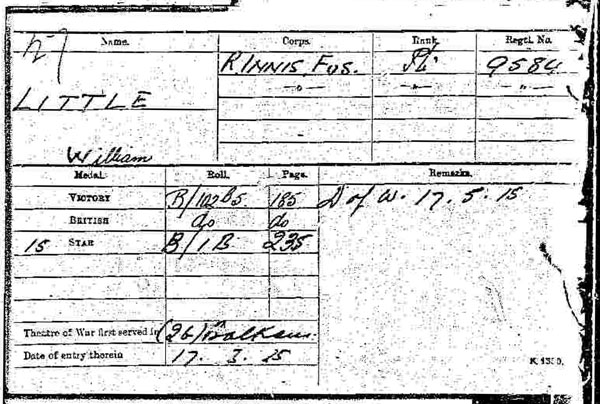 Name. Corps. Rank. Regtl. No.
R. INNIS. FUS. Pt. 9584
LITTLE — " — — " — — " —
William
Medal. Roll. Page. Remarks.
VICTORY B/102 B5. 185 D of W. 17. 5. 15
BRITISH do do
15 STAR B/1 B 235
Theatre of War first served in (2b) Balkans
Date of entry therein 17. 3. 15
K 1380.